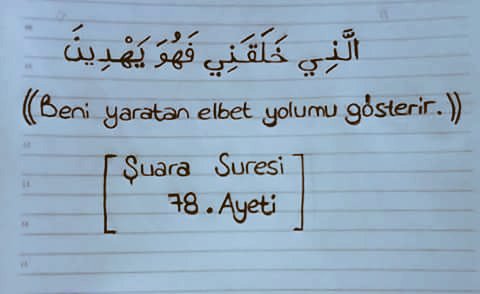 الَّذِي خَلَقَنِي فَهُوَ يَهْدِينَ
((Beni yaratan elbet yolumu gösterir.))
[Şuara Suresi
78. Ayeti]